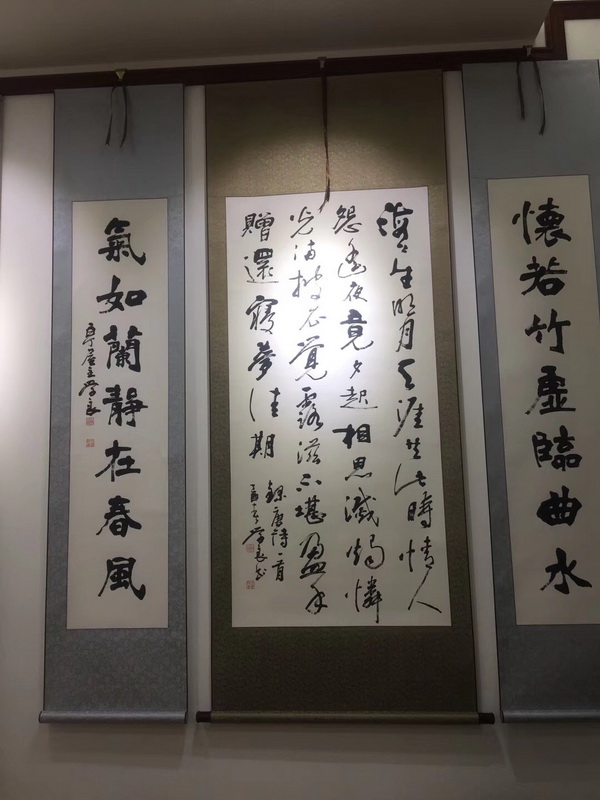 懷若竹虛臨曲水
海上生明月天涯共此時情人
怨遙夜竟夕起相思滅燭憐
光滿披衣覺露滋不堪盈手
贈還寢夢佳期
錄唐詩一首
氣如蘭靜在春風